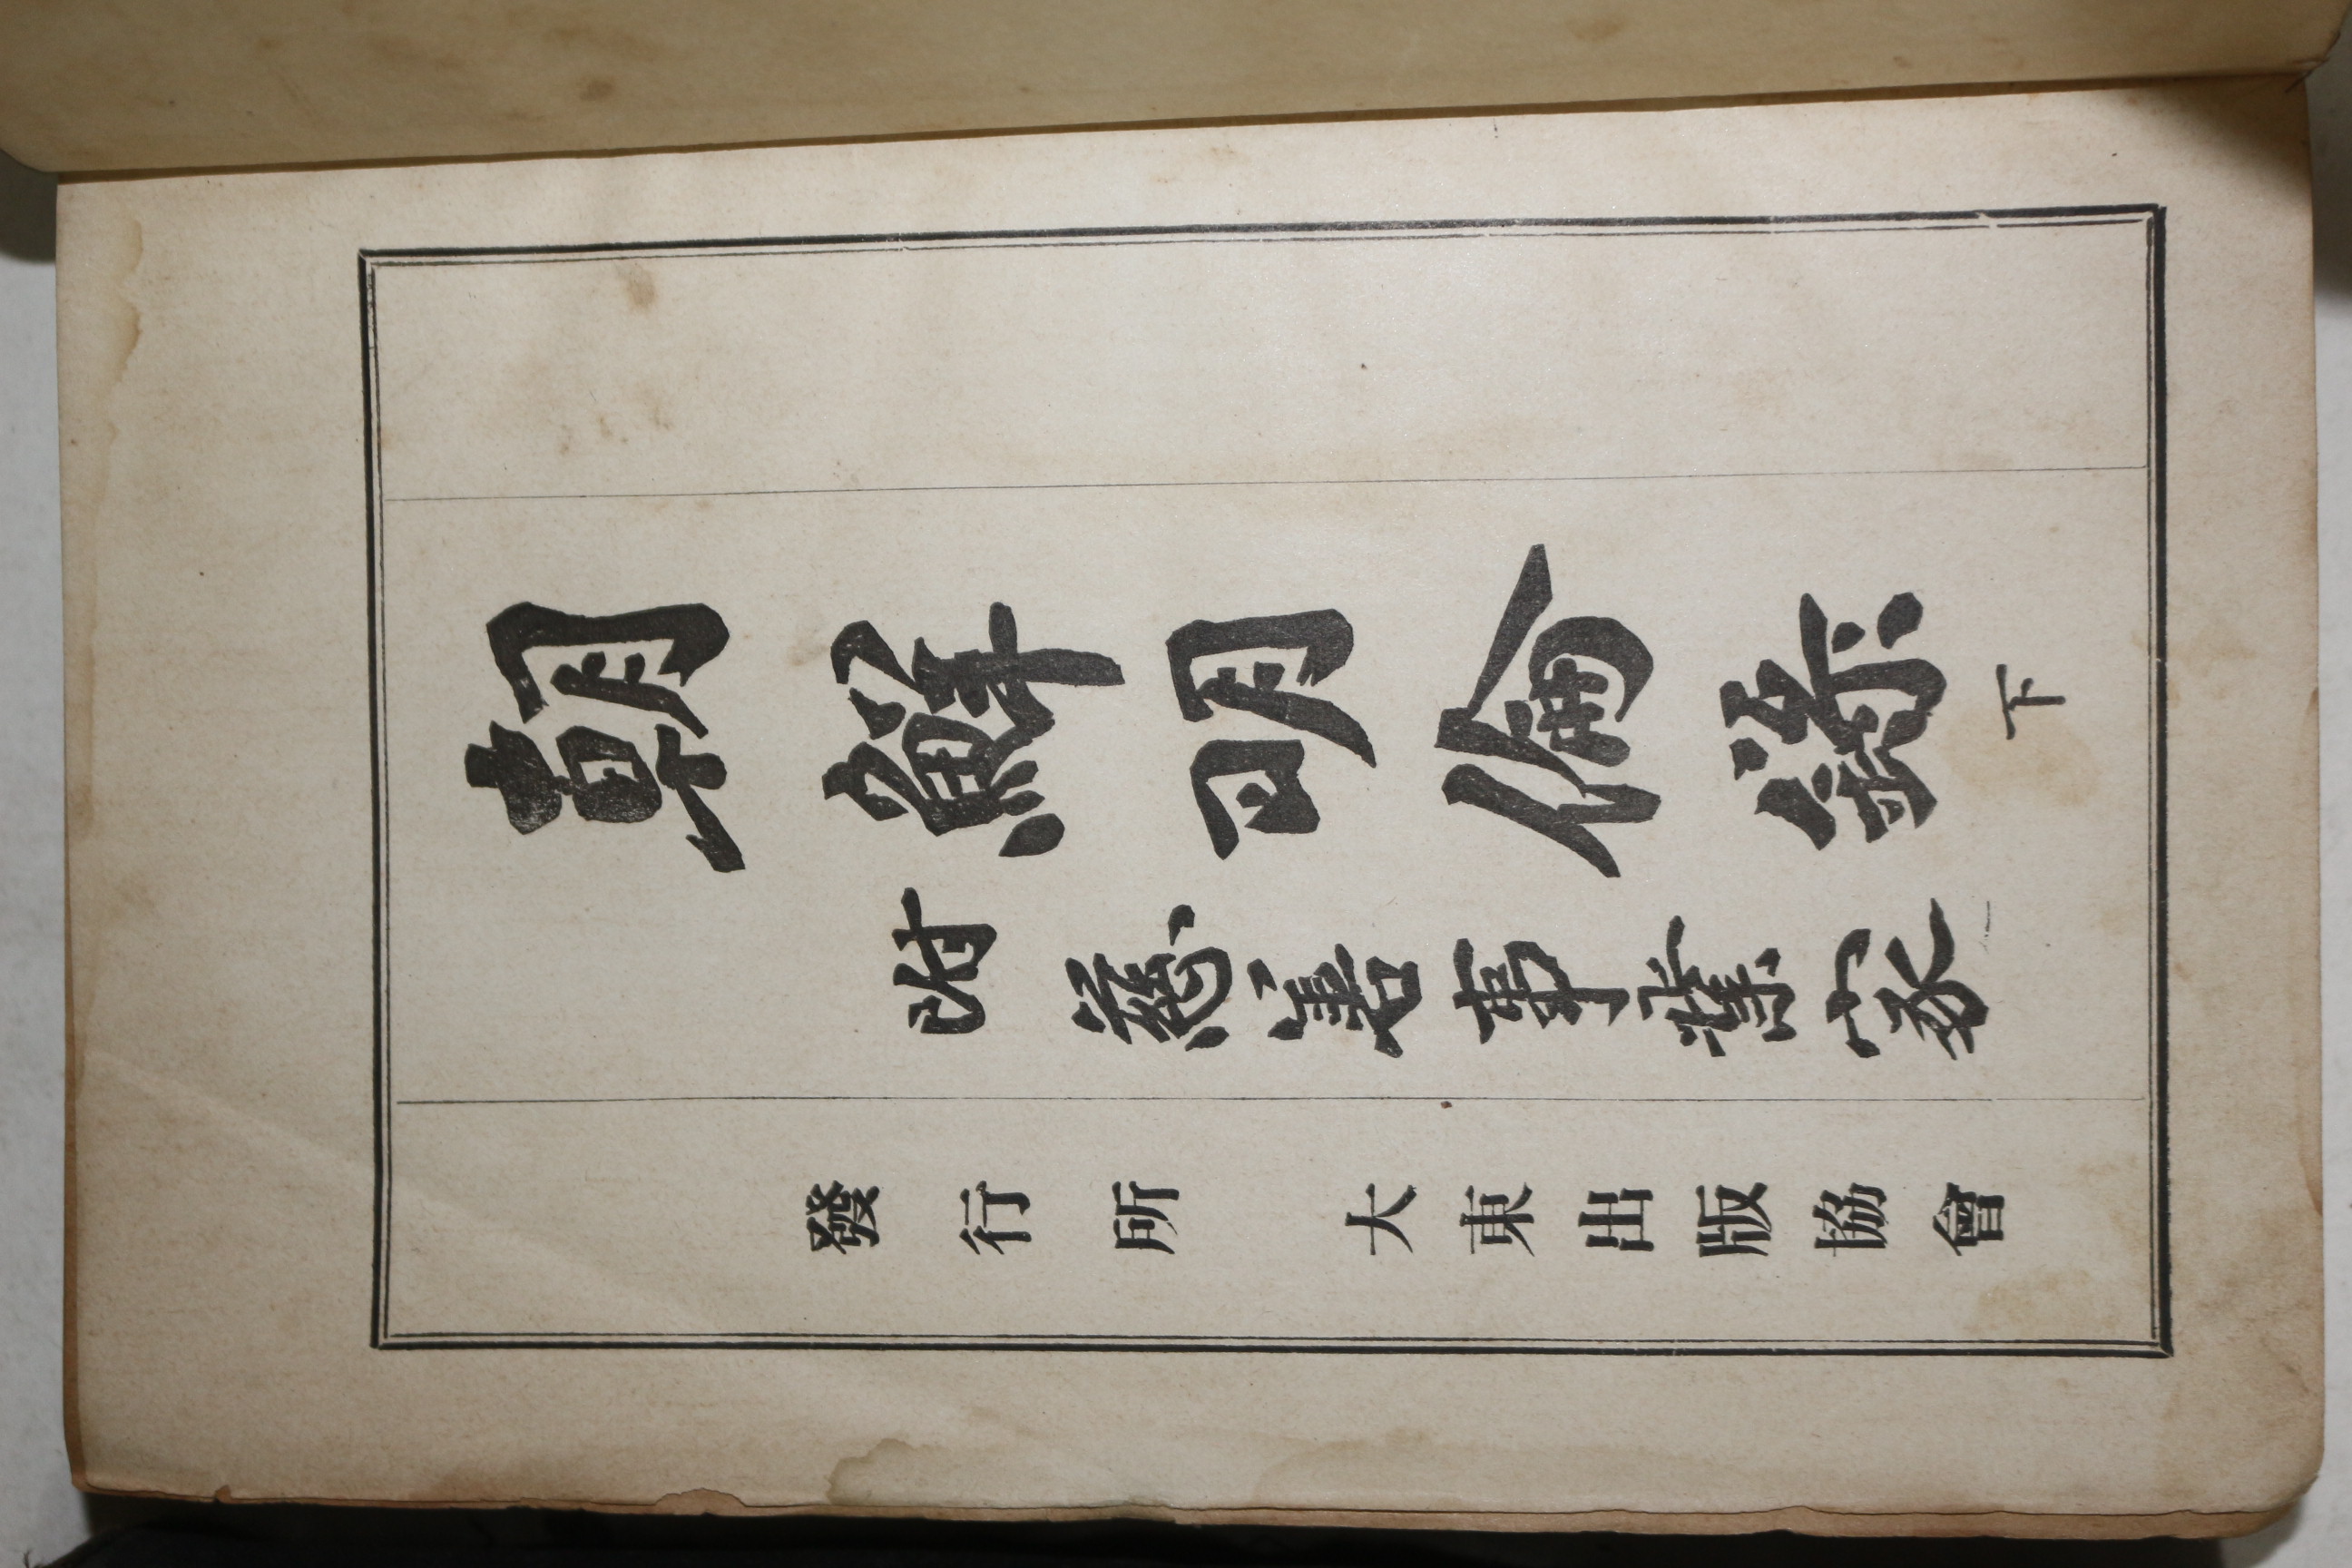 朝鮮明倫錄 下
附 慈善事業家
發行所 大東出版協會